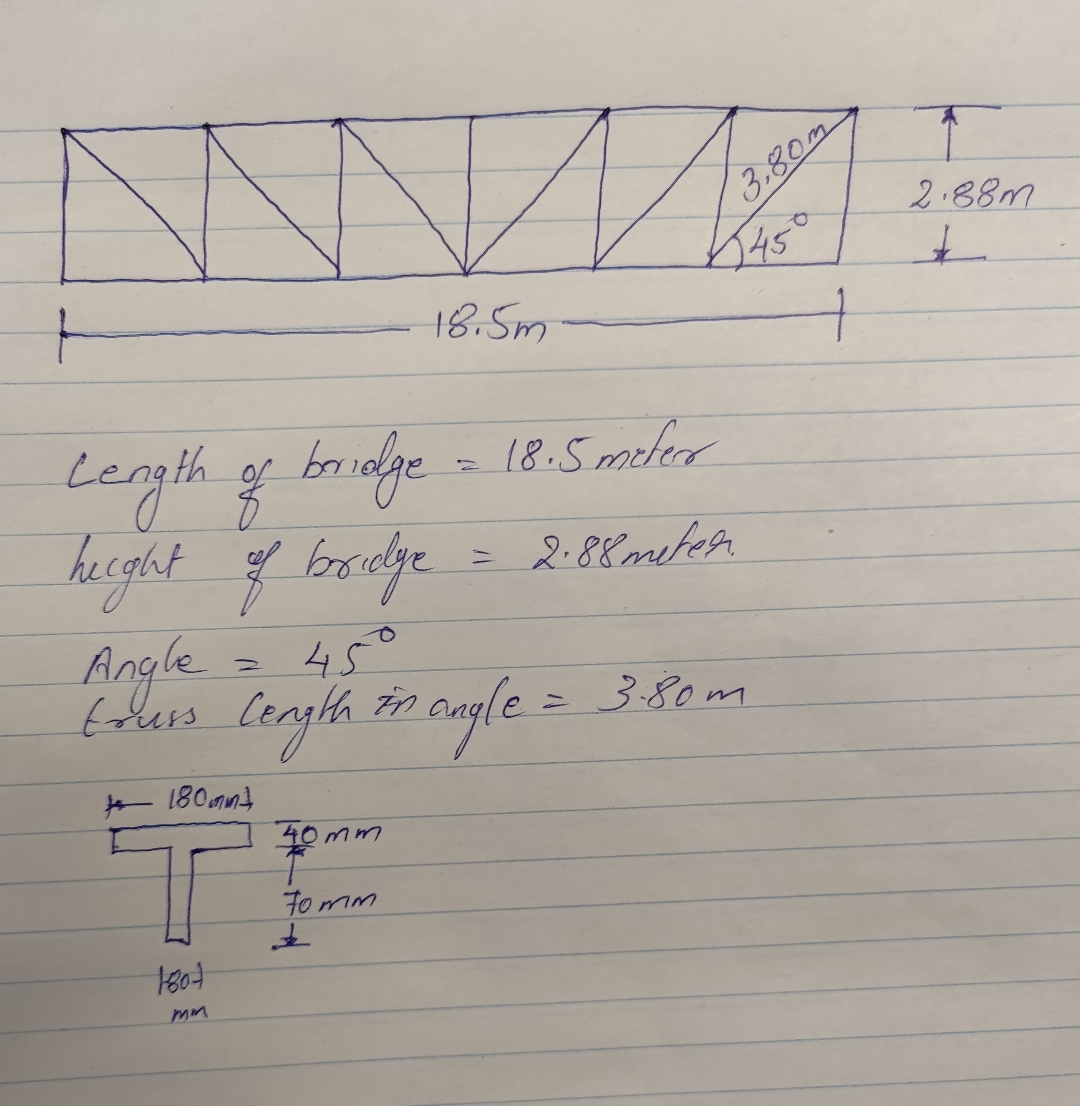 3.80m
45°
2.88m
18.5m
Length of bridge = 18.5 meter
height of bridge = 2.88 meter
Angle = 45°
truss length in angle = 3.80 m
180mm
40 mm
70 mm
80
mm